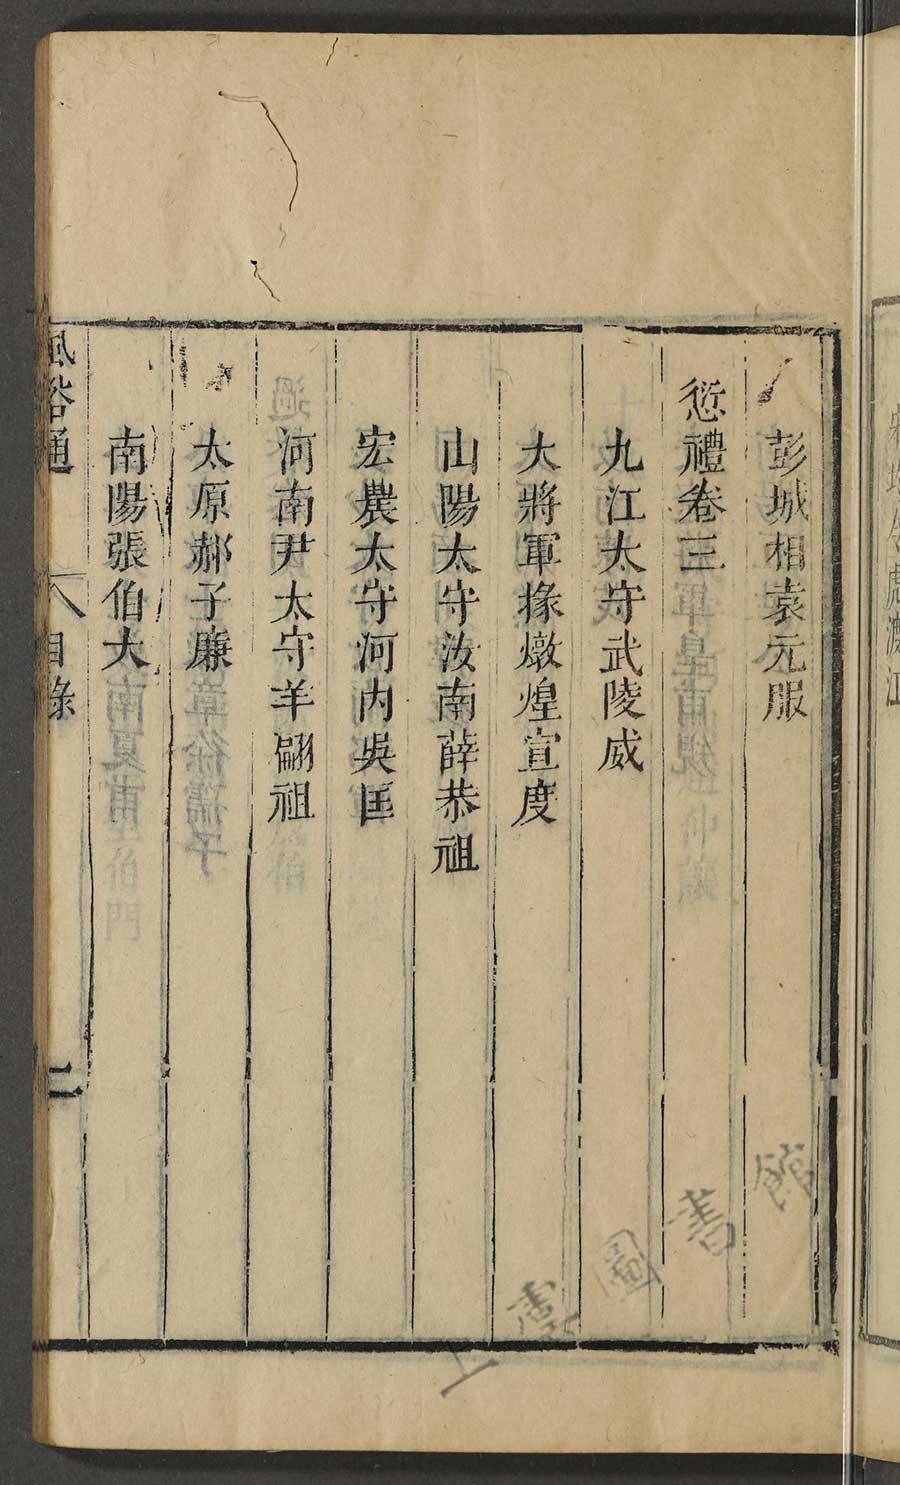 彭城相袁元服
愆禮卷三
九江太守武陵威
大將軍掾燉煌宣度
山陽太守汝南薛恭祖
宏農太守河內吳匡
河南尹太守羊翩祖
太原郝子廉
南陽張伯大
風俗通 目錄 二
圖書館